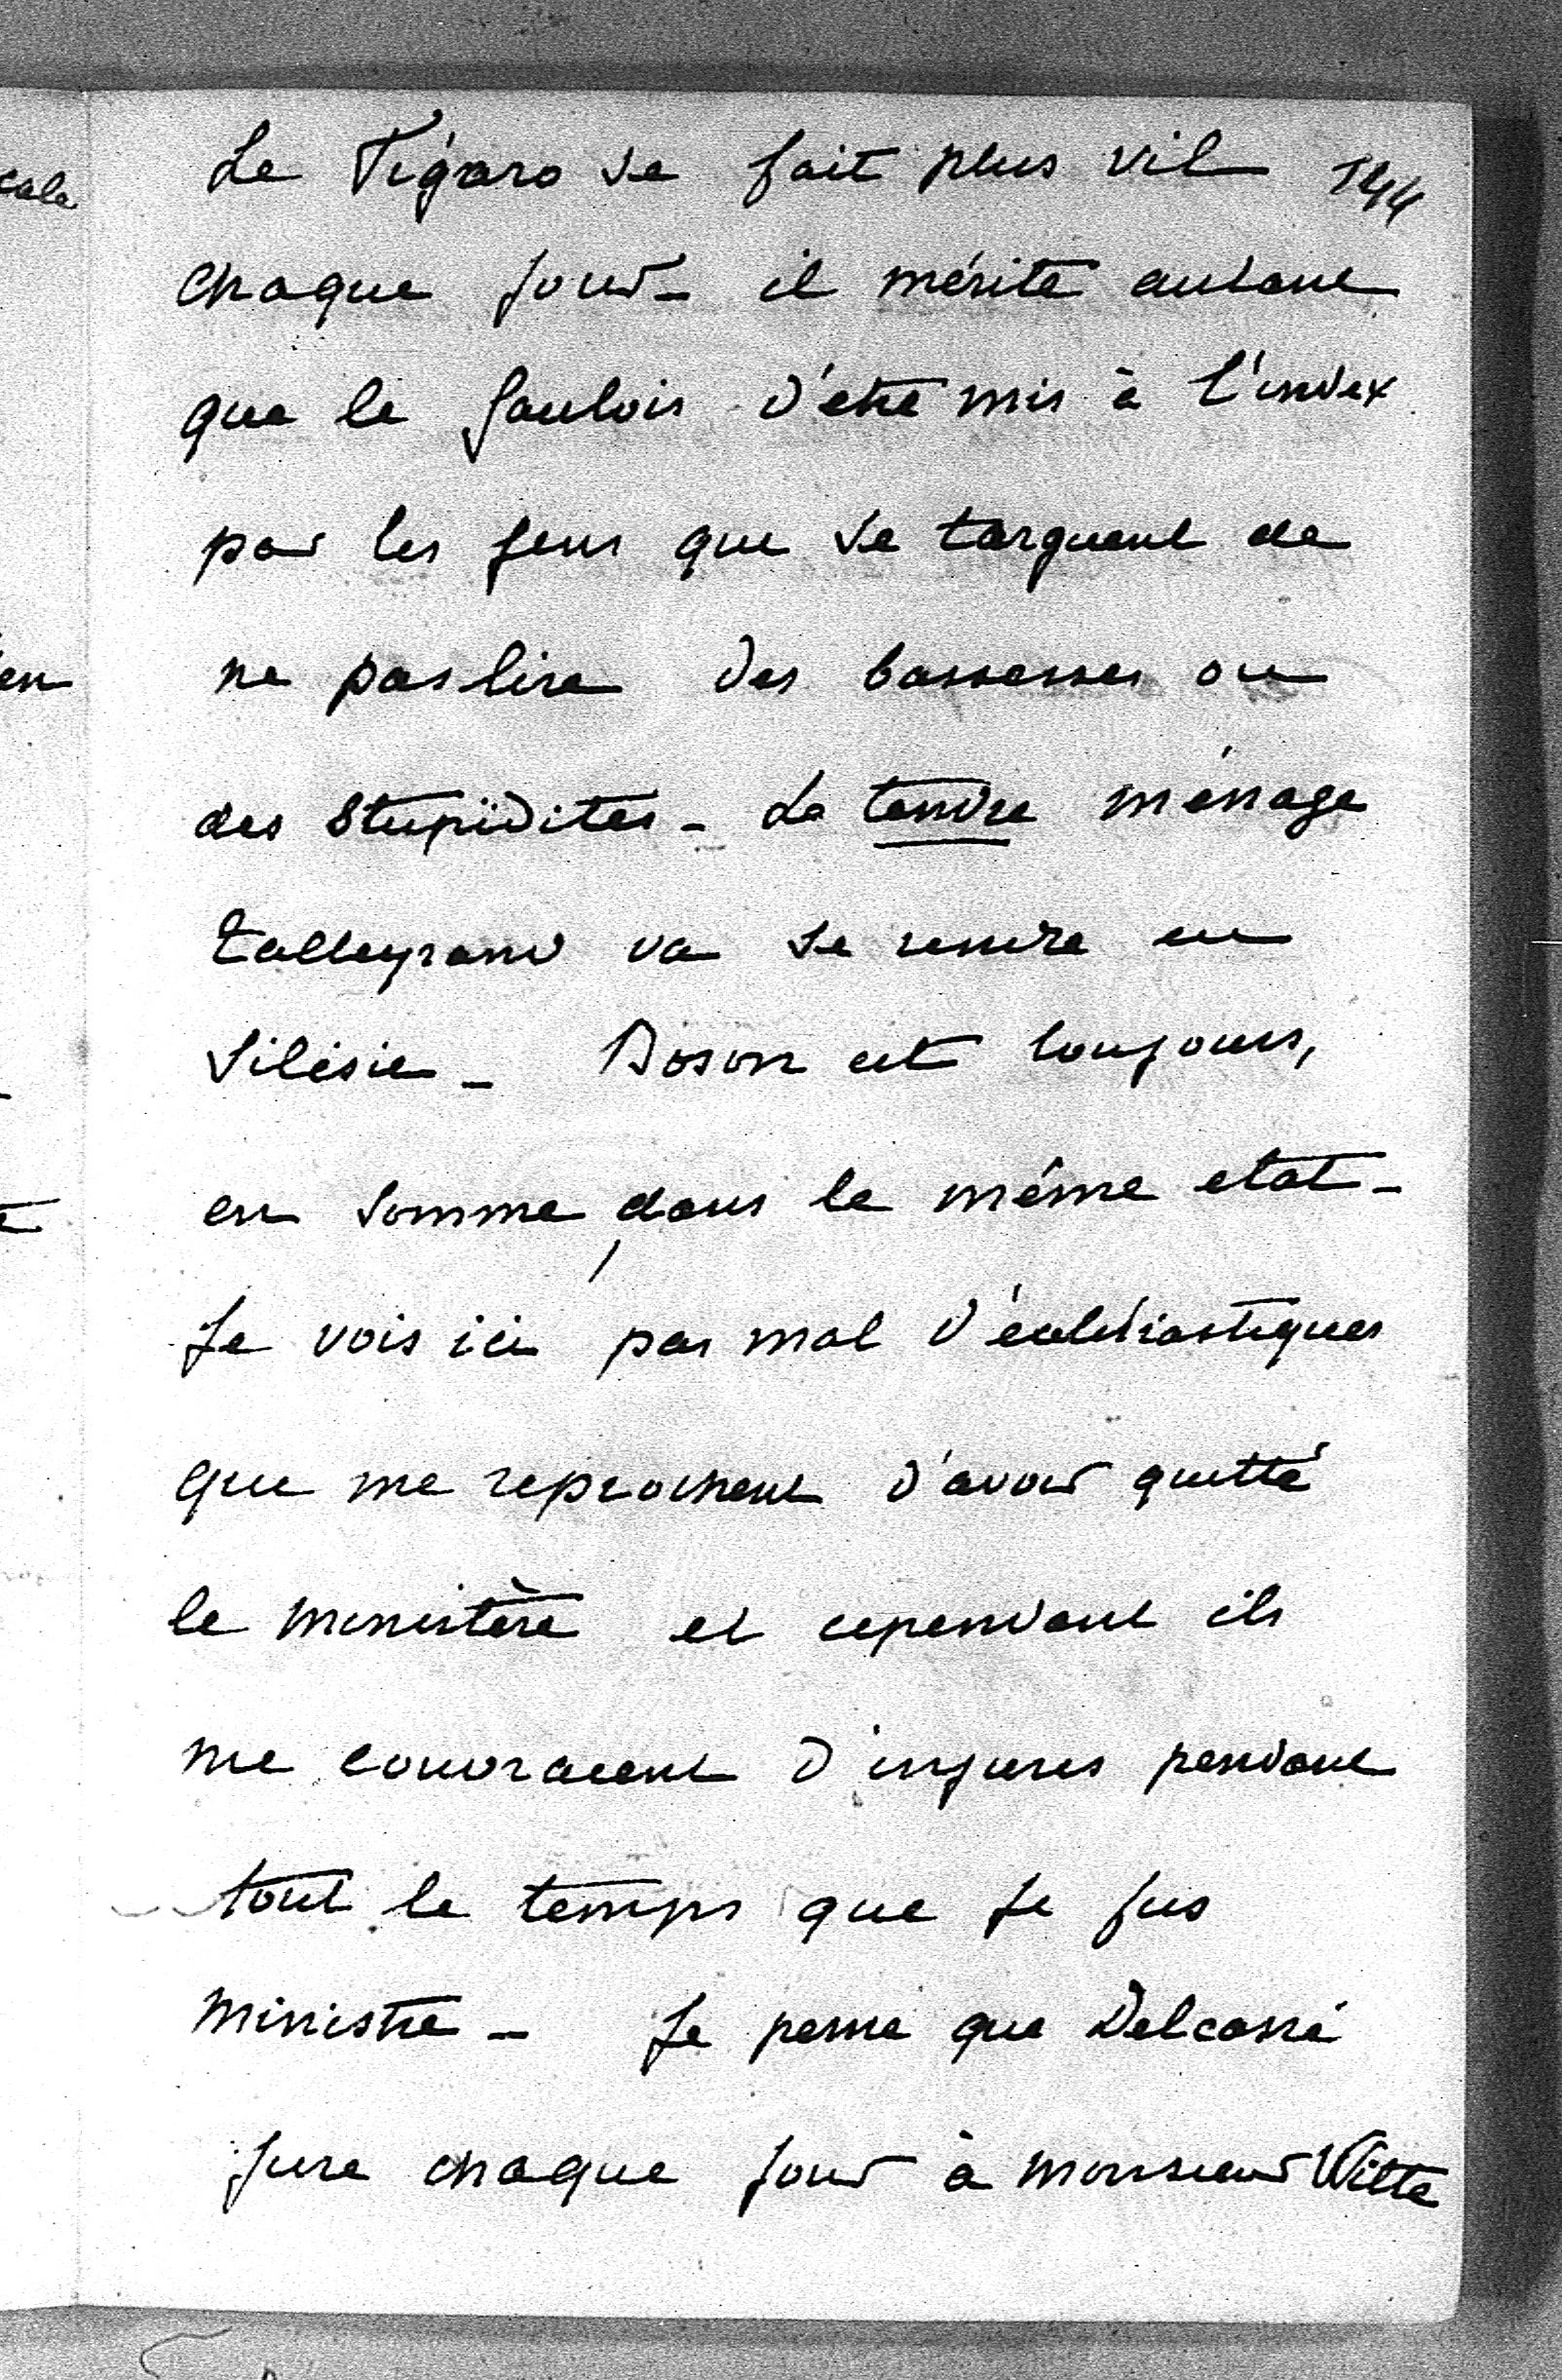 Le Figaro se fait plus vil
chaque jour - il mérite autant
que le Gaulois d'etre mis à l'index
par les gens qui se targuent de
ne pas lire des bassesses ou
des stupidités - Le tendre ménage
Talleyrand va se rendre en
Silésie - Boson est toujours,
en somme, dans le même etat -
Je vois ici pas mal d'ecclésiastiques
qui me reprochent d'avoir quitté
le ministère et cependant ils
me couvraient d'injures pendant
tout le temps que je fus
ministre - Je pense que Delcassé
jure chaque jour à monsieur Witte